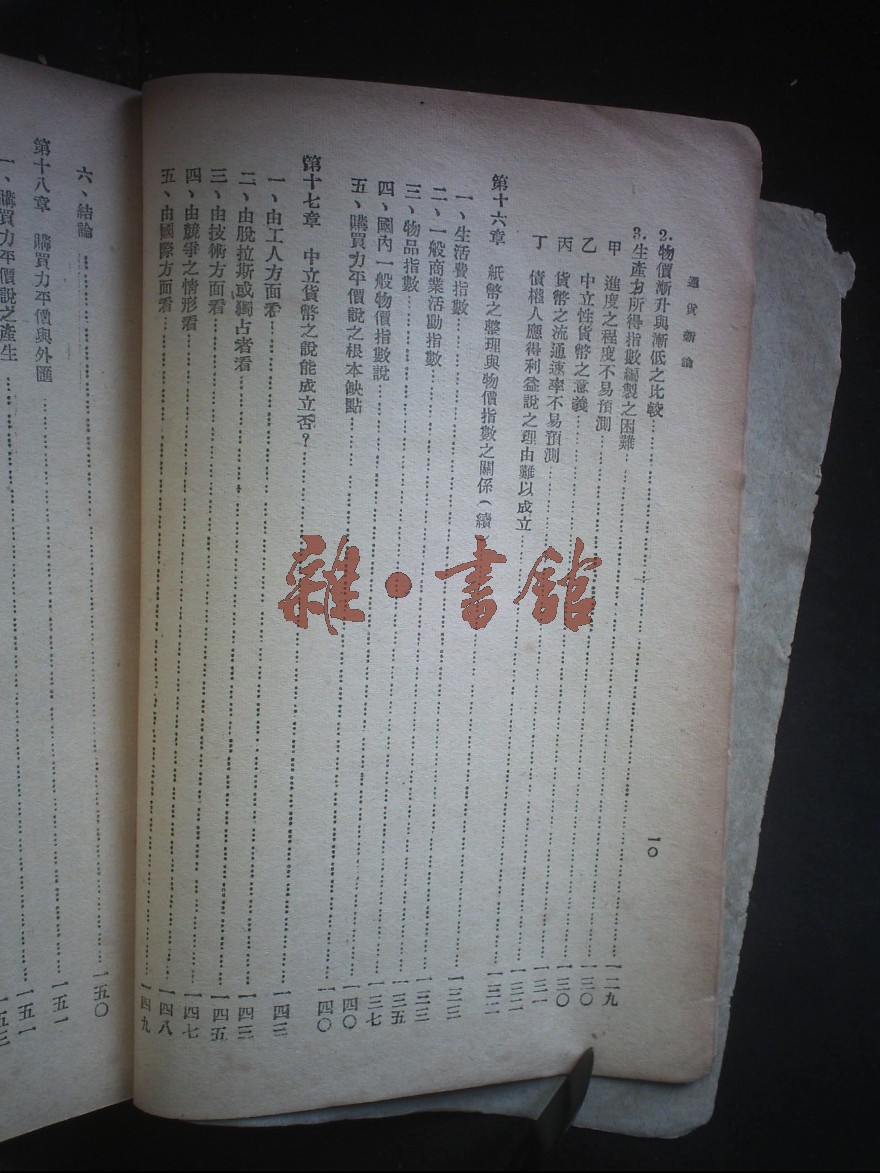 通貨新論
一〇
2. 物價漸升與漸低之比較……一二九
3. 生產力所得指數編製之困難……一三〇
甲 進度之程度不易預測……一三〇
乙 中立性貨幣之意義……一三一
丙 貨幣之流通速率不易預測……一三二
丁 債權人應得利益說之理由難以成立……一三二
第十六章 紙幣之整理與物價指數之關係（續……一三三
一、生活費指數……一三三
二、一般商業活動指數……一三五
三、物品指數……一三七
四、國內一般物價指數說……一四〇
五、購買力平價說之根本缺點……一四〇
第十七章 中立貨幣之說能成立否？……一四三
一、由工人方面看……一四三
二、由脫拉斯或獨占者看……一四五
三、由技術方面看……一四七
四、由競爭之情形看……一四八
五、由國際方面看……一四九
六、結論……一五〇
第十八章 購買力平價與外匯……一五一
一、購買力平價說之產生……一五一
一五三
雜·書館